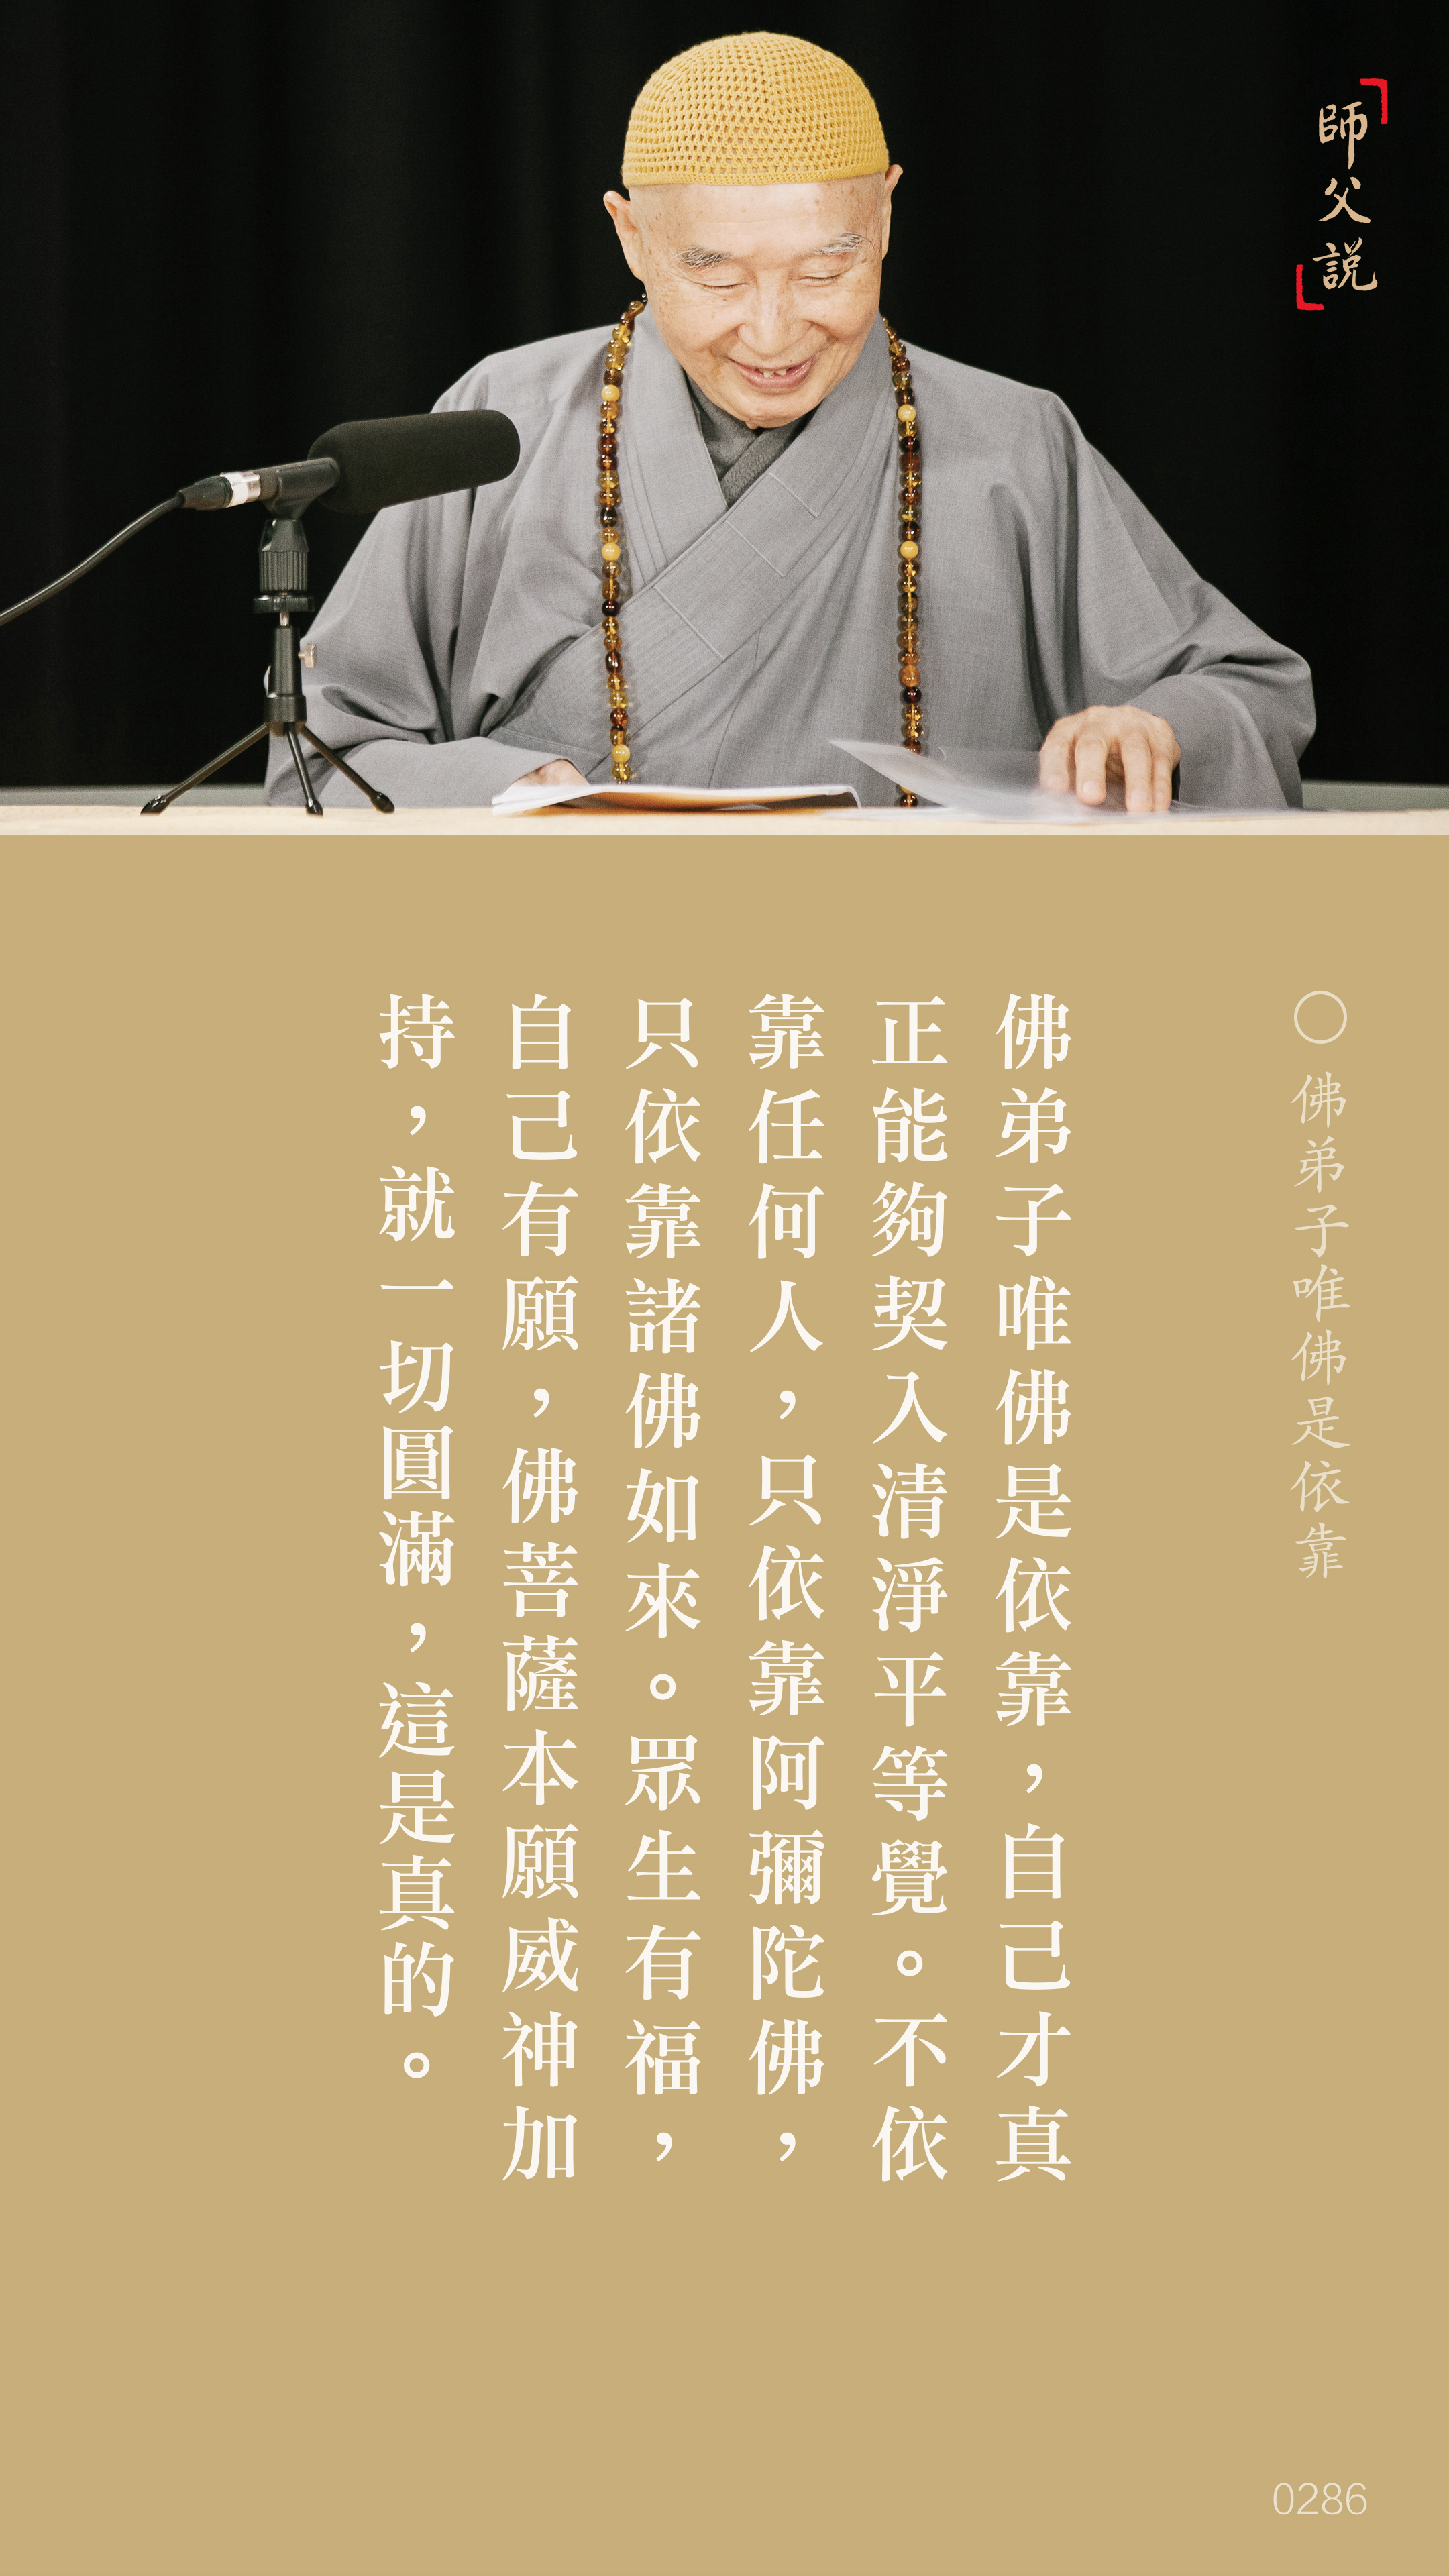 師父説
〇佛弟子唯佛是依靠
佛弟子唯佛是依靠，自己才真
正能夠契入清淨平等覺。不依
靠任何人，只依靠阿彌陀佛，
只依靠諸佛如來。眾生有福，
自己有願，佛菩薩本願威神加
持，就一切圓滿，這是真的。
0286